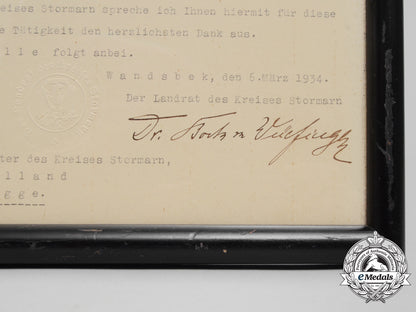 eises Stormarn spreche ich Ihnen hiermit für diese
e Tätigkeit den herzlichsten Dank aus.
lle folgt anbei.
Wandsbek, den 6.März 1934.
Der Landrat des Kreises Stormarn
Dr.
ter des Kreises Stormarn,
lland
gge.
eMedals